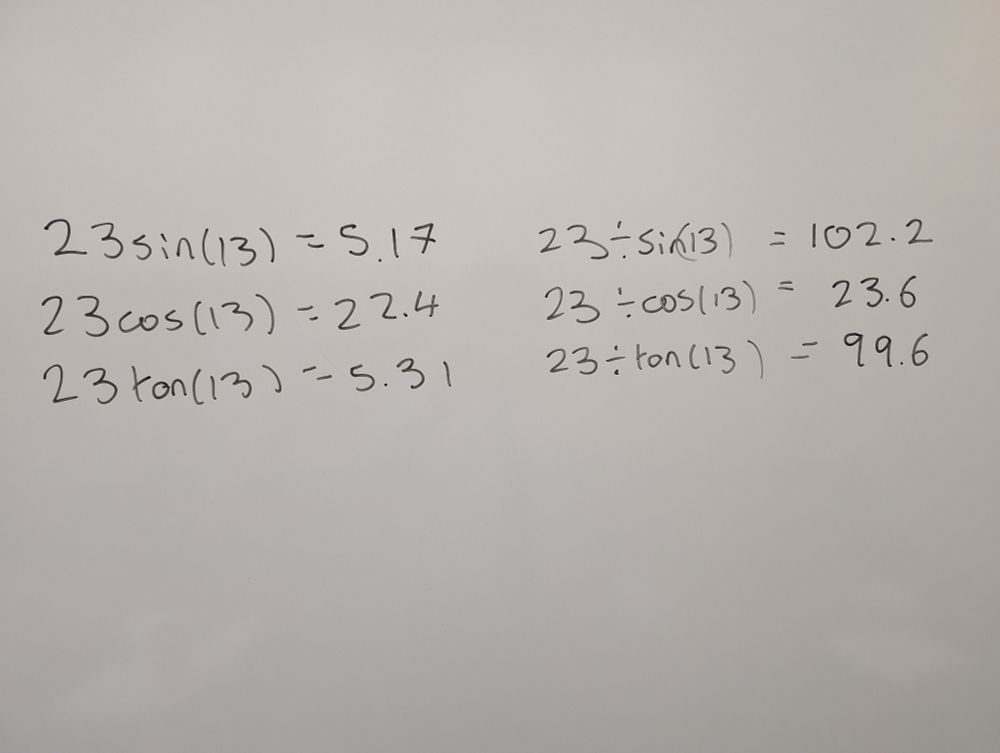 23sin(13) = 5.17
23cos(13) = 22.4
23tan(13) = 5.31
23÷sin(13) = 102.2
23÷cos(13) = 23.6
23÷tan(13) = 99.6